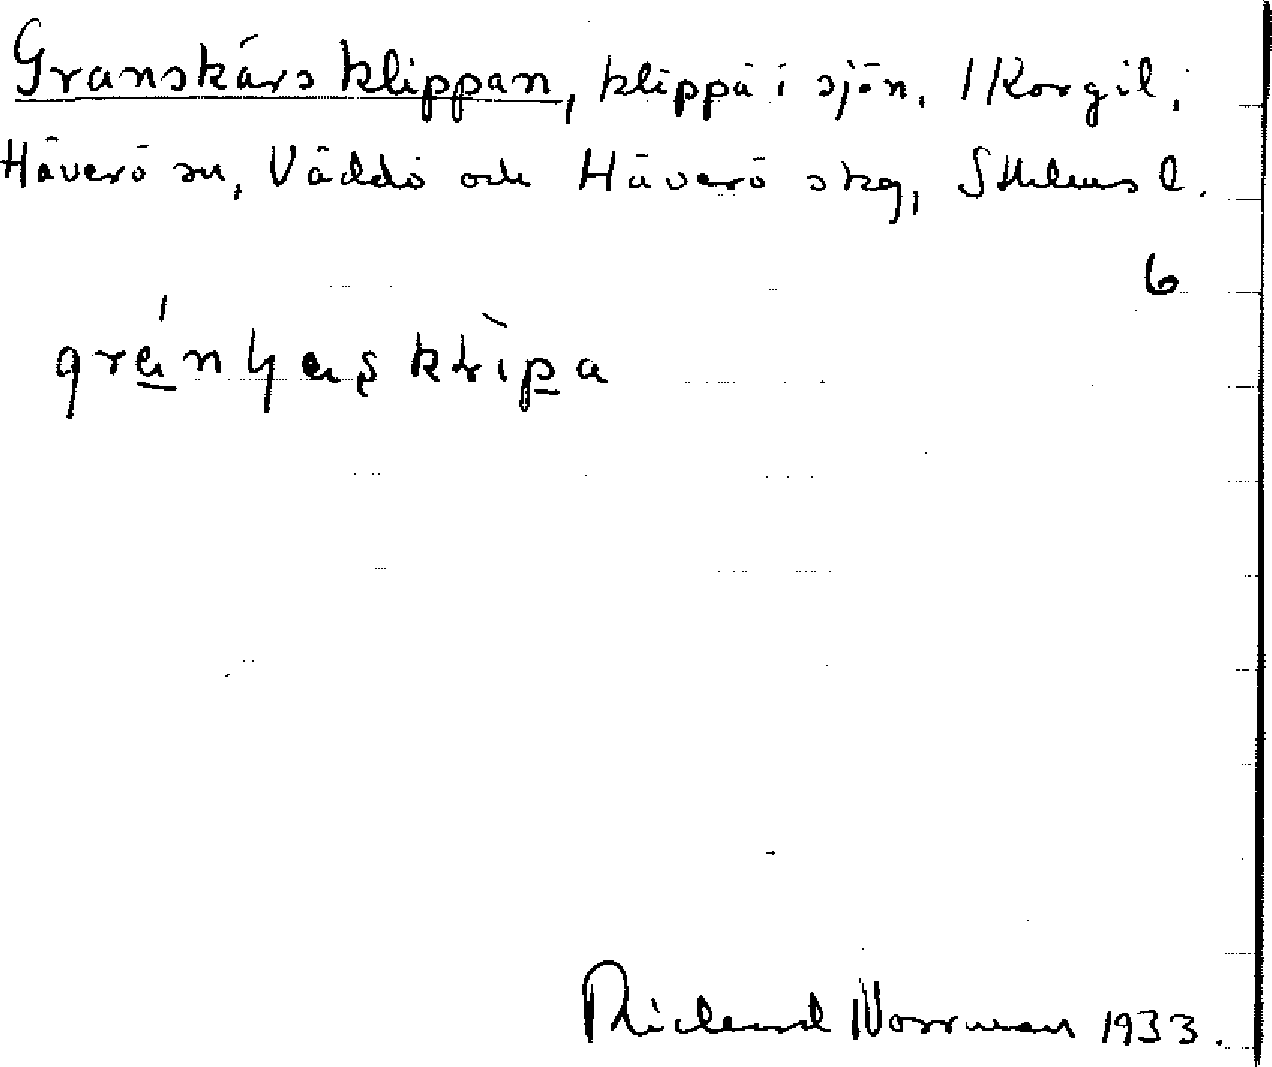 Granskärsklippan, klippa i sjön, /Korgil,
Häverö sn, Väddö och Häverö skg, Sthlms l.
6
Richard Norrman 1933.